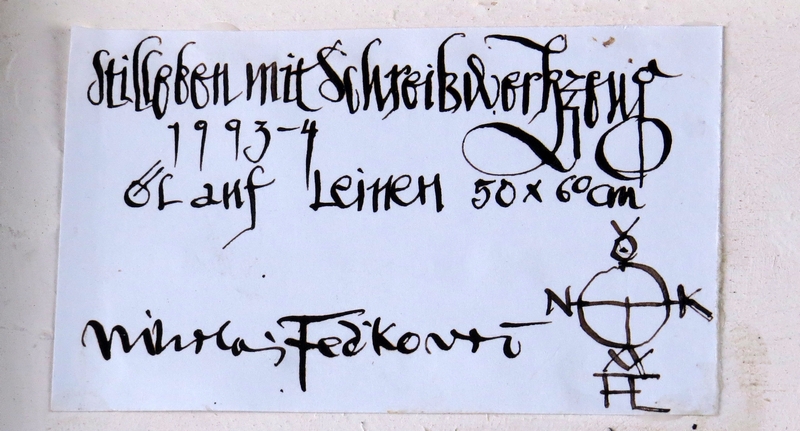 Stilleben mit Schreibwerkzeug
1993-4
Öl auf Leinen 50 x 60 cm
Nikolai
N K